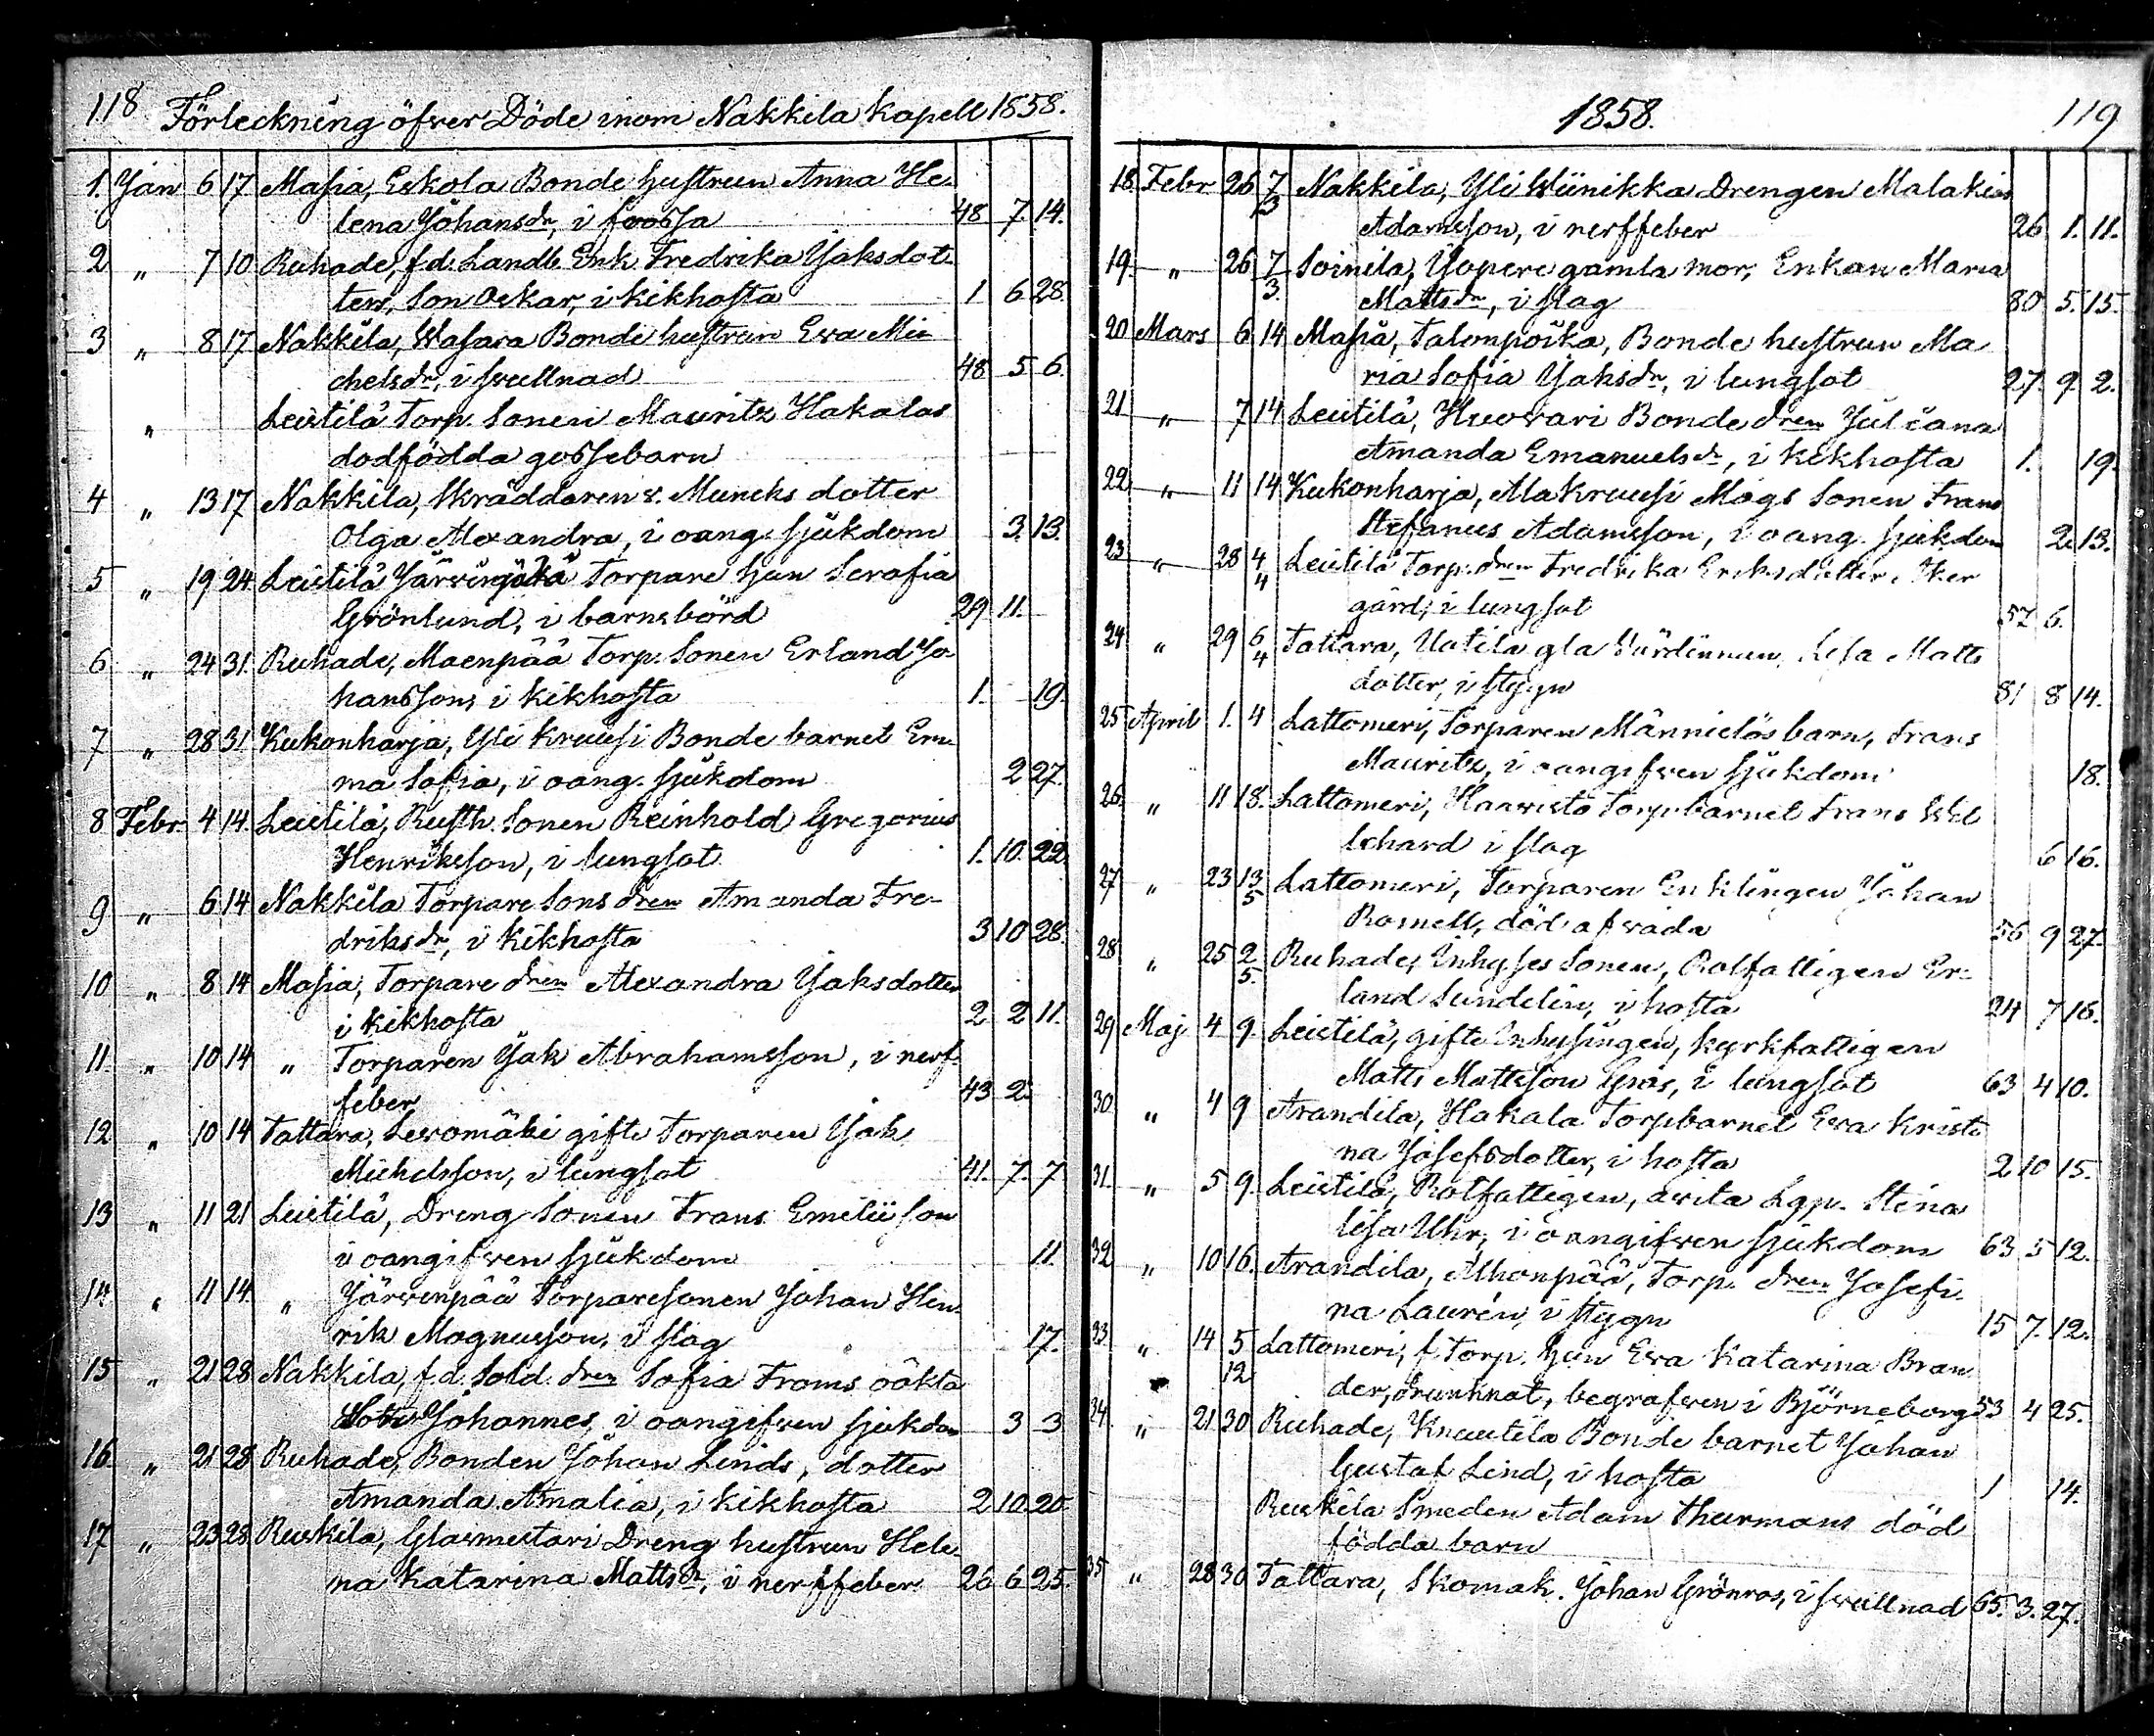 118 Förteckning öfver Döde inom Nakkila Kapell 1858.
1. Jan 6 17 Masia, Eskola Bonde hustrun Anna He-
lena Johansdr, i frossa 48 7. 14.
2 " 7 10 Ruhade, f.d. Landb. Enk Fredrika Jaksdot-
ters, Son Oskar, i kikhosta 1 6 28.
3 " 8 17 Nakkila, Wasara Bonde hustrun Eva Mi-
chelsdr, i svullnad 48 5 6.
" Leistilä Torp. Sonen Mauritz Hakalas
dödfödda gossebarn
4 " 13 17 Nakkila, Skräddaren Muncks dotter
Olga Alexandra, i oang. sjukdom 3. 13.
5 " 19 24 Leistilä Torpare hun Serafia
Grönlund, i barnsbörd 29 11.
6 " 24 31. Ruhade, Maenpää Torp. Sonen Erland Jo-
hansson, i kikhosta 1. 19.
7 " 28 31 Kukonharja, Yli Kruusi Bonde barnet Em-
ma Sofia, i oang. sjukdom 2 27.
8 Febr 4 14. Leistilä, Rusth. Sonen Reinhold Gregorius
Henriksson, i lungsot 1. 10. 22
9 " 6 14 Nakkila Torpare Sons dren Amanda Fre-
driksdr, i kikhosta 3 10 28.
10 " 8 14 Masia, Torpare dren Alexandra Jaksdotter
i kikhosta 2 2 11.
11. " 10 14 " Torparen Jak Abrahamsson, i nerf-
feber 43 2.
12 " 10 14 Tattara, Levomäki gifte Torparen Jak
Michelsson, i lungsot 41. 7. 7
13 " 11 21 Leistilä, Dreng Sonen Frans Emelii son
i oangifven sjukdom 11.
14. " 11 14. " Järvenpää Torparesonen Johan Hen-
rik Magnusson, i slag 17.
15 " 21 28 Nakkila, f.d. Sold. dren Sofia Froms oäkta
Johannes, i oangifven sjukdom 3 3
16. " 21 28 Ruhade, Bonden Johan Linds, dotter
Amanda Amalia, i kikhosta 2 10. 20.
17 " 23 28 Ruskila, Glasmestari Dreng hustrun Hele-
na Katarina Mattsdr, i nerffeber 26 6 25
1858. 119
18. Febr 26 7/3 Nakkila, Yli Wiinikka Drengen Malakias
Adamsson, i nerffeber 26 1. 11.
19. " 26 7/3. Soinila, Yopere gamla mor, Enkan Maria
Mattsdr, i slag 80 5. 15.
20 Mars 6 14 Masia, Talonpoika, Bonde hustrun Ma
ria Sofia Jaksdr, i lungsot 27. 9. 2.
21 " 7 14 Leistilä, Huovari Bonde dren Juliana
Amanda Emanuelsdr, i kikhosta 1. 19.
22 " 11 14 Kukonharja, Alakruusi Mågs Sonen Frans
Stefanus Adamsson, i oang. sjukdom 2. 13.
23 " 28 4/4 Leistilä Torp. dren Fredrika Eriksdotter
gård, i lungsot 57 6.
24 " 29 6/4 Tattara, Uotila gla Wärdinnan, Lisa Matts
dotter, i stygn 81 8 14.
25 April 1. 4 Lattomeri, Torparen Männistös barn, Frans
Mauritz, i oangifven sjukdom 18.
26. " 11 18. Lattomeri, Haavisto Torp. barnet Frans Wil
lehard i slag 6 16.
27 " 23 13/5 Lattomeri, Torparen Enklingen Johan
Romell, död af våda 56 9 27.
28 " 25 2/5. Ruhade, Inhyses Sonen, Rotfattigen Er-
land Sundelin, i hosta 24 7 16.
29 Maj 4 9. Leistilä, gifte Inhysingen, kyrkfattigen
Matts Mattsson Gräs, i lungsot 63 4 10.
30 " 4 9 Arandila, Hakala Torpbarnet Eva Kristi
na Josefsdotter, i hosta 2 10 15.
31. " 5 9. Leistilä, Rotfattigen, avita Lgp. Stina
Lisa Uhr, i oangifven sjukdom 63 5 12.
32 " 10 16. Arandila, Alhonpää, Torp. dren Josefi-
na Lauren, i stygn 15 7. 12.
33 " 14 5/12 Lattomeri, f. Torp. hun Eva Katarina Bran
der, drunknat, begrafven i Björneborg 53 4 25.
34. " 21 30 Ruhade, Knuutila Bonde barnet Johan
Gustaf Lind, i hosta 1 14.
Ruskila Smeden Adam Thurmans död
födda barn
35 " 28 30 Tattara, Skomak. Johan Grönros, i svullnad 65. 3. 27.